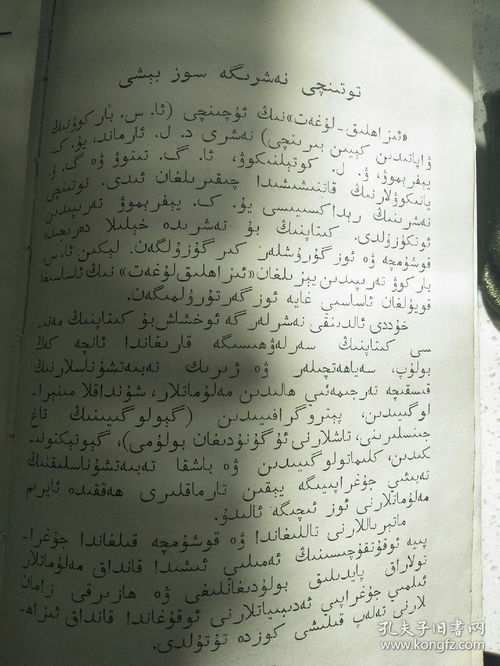 تۆتىنچى نەشرىگە سوز بېشى
«ئىزاھلىق-لۇغەت»نىڭ ئۇچىنچى (ئا. س. باركوۋنىڭ
ۋاپاتىدىن كېيىن بىرىنچى) نەشرى د. ل. ئارماند، يۇ. ك.
يېفرېموۋ، ۋ. ل. كوتېلنىكوۋ، ئا. گ. تىتوۋ ۋە گ. ۋ.
يانىكوۋلارنىڭ قاتنىشىشىدا چىقىرىلغان ئىدى. توتىنچى
نەشرىنىڭ رېداكسىيىسى يۇ. ك. يېفرېموۋ تەرىپىدىن
ئوتكۈزۈلدى. كىتاپنىڭ بۇ نەشرىدە خېلىلا دەرىجىدە
قوشۇمچە ۋە ئوزگۈرۇشلەر كىرگۈزۈلگەن. لېكىن ئا. س.
باركوۋ تەرىپىدىن يېزىلغان «ئىزاھلىق لۇغەت» نىڭ ئاساسىغا
قويۇلغان ئاساسىي غايە ئوزگەرتۇرۇلمىگەن.
خۇددى ئالدىنقى نەشرلەرگە ئوخشاش بۇ كىتاپنىڭ مەنبـ
ـسى كىتاپنىڭ سەرلەۋھىسىگە قارىغاندا ئانچە كەڭ
بولۇپ، سەياھەتچىلەر ۋە ژىرىك تەبىئەتشۇناسلارنىڭ
قىسقىچە تەرجىمەئى ھالىدىن مەلۇماتلار، شۇنداقلا مىنېرا-
لوگىيىدىن، پېتروگرافىيىدىن (گېولوگىيىنىڭ تاغ
جىنسلىرىنى، تاشلارنى ئۇگۇنۇدىغان بولۇمى)، گېوتېكتونىـ
ـكىدىن، كلىماتولوگىيىدىن ۋە باشقا تەبىئەتشۇناسلىقنىڭ
تەبىئىي جۇغراپىيىگە يېقىن تارماقلىرى ھەققىدە ئايرىم
مەلۇماتلارنى ئوز ئىچىگە ئالىدۇ.
ماتېرىياللارنى تاللىغاندا ۋە قوشۇمچە قىلغاندا جۇغرا-
پىيە ئوقۇتقۇچىسىنىڭ ئەمىلىي ئىشىدا قانداق مەلۇماتلار
تولاراق پايدىلىق بولۇدىغانلىغى ۋە ھازىرقى زامان
ئىلمىي جۇغراپىي ئەدىبىياتلارنى ئوقۇغاندا قانداق ئىزاھ-
لارنى تەلەپ قىلىنشى كوزدە تۇتۇلدى.
孔夫子旧书网
www.kongfz.com